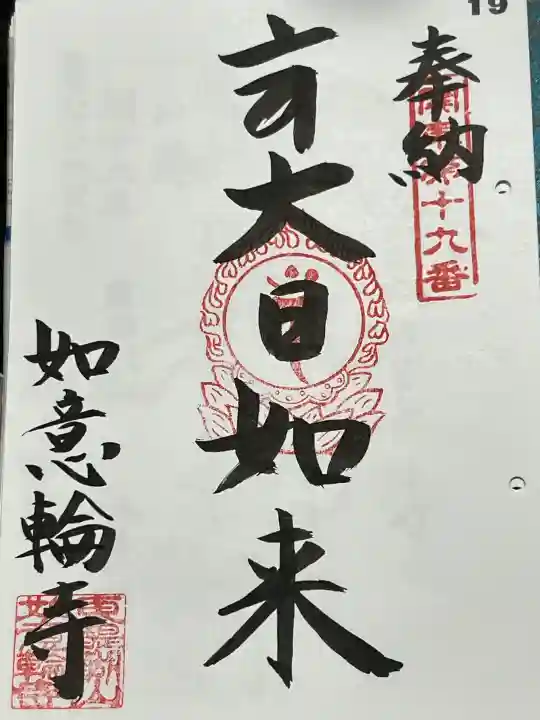 19
奉納
十九番
大日如来
如意輪寺